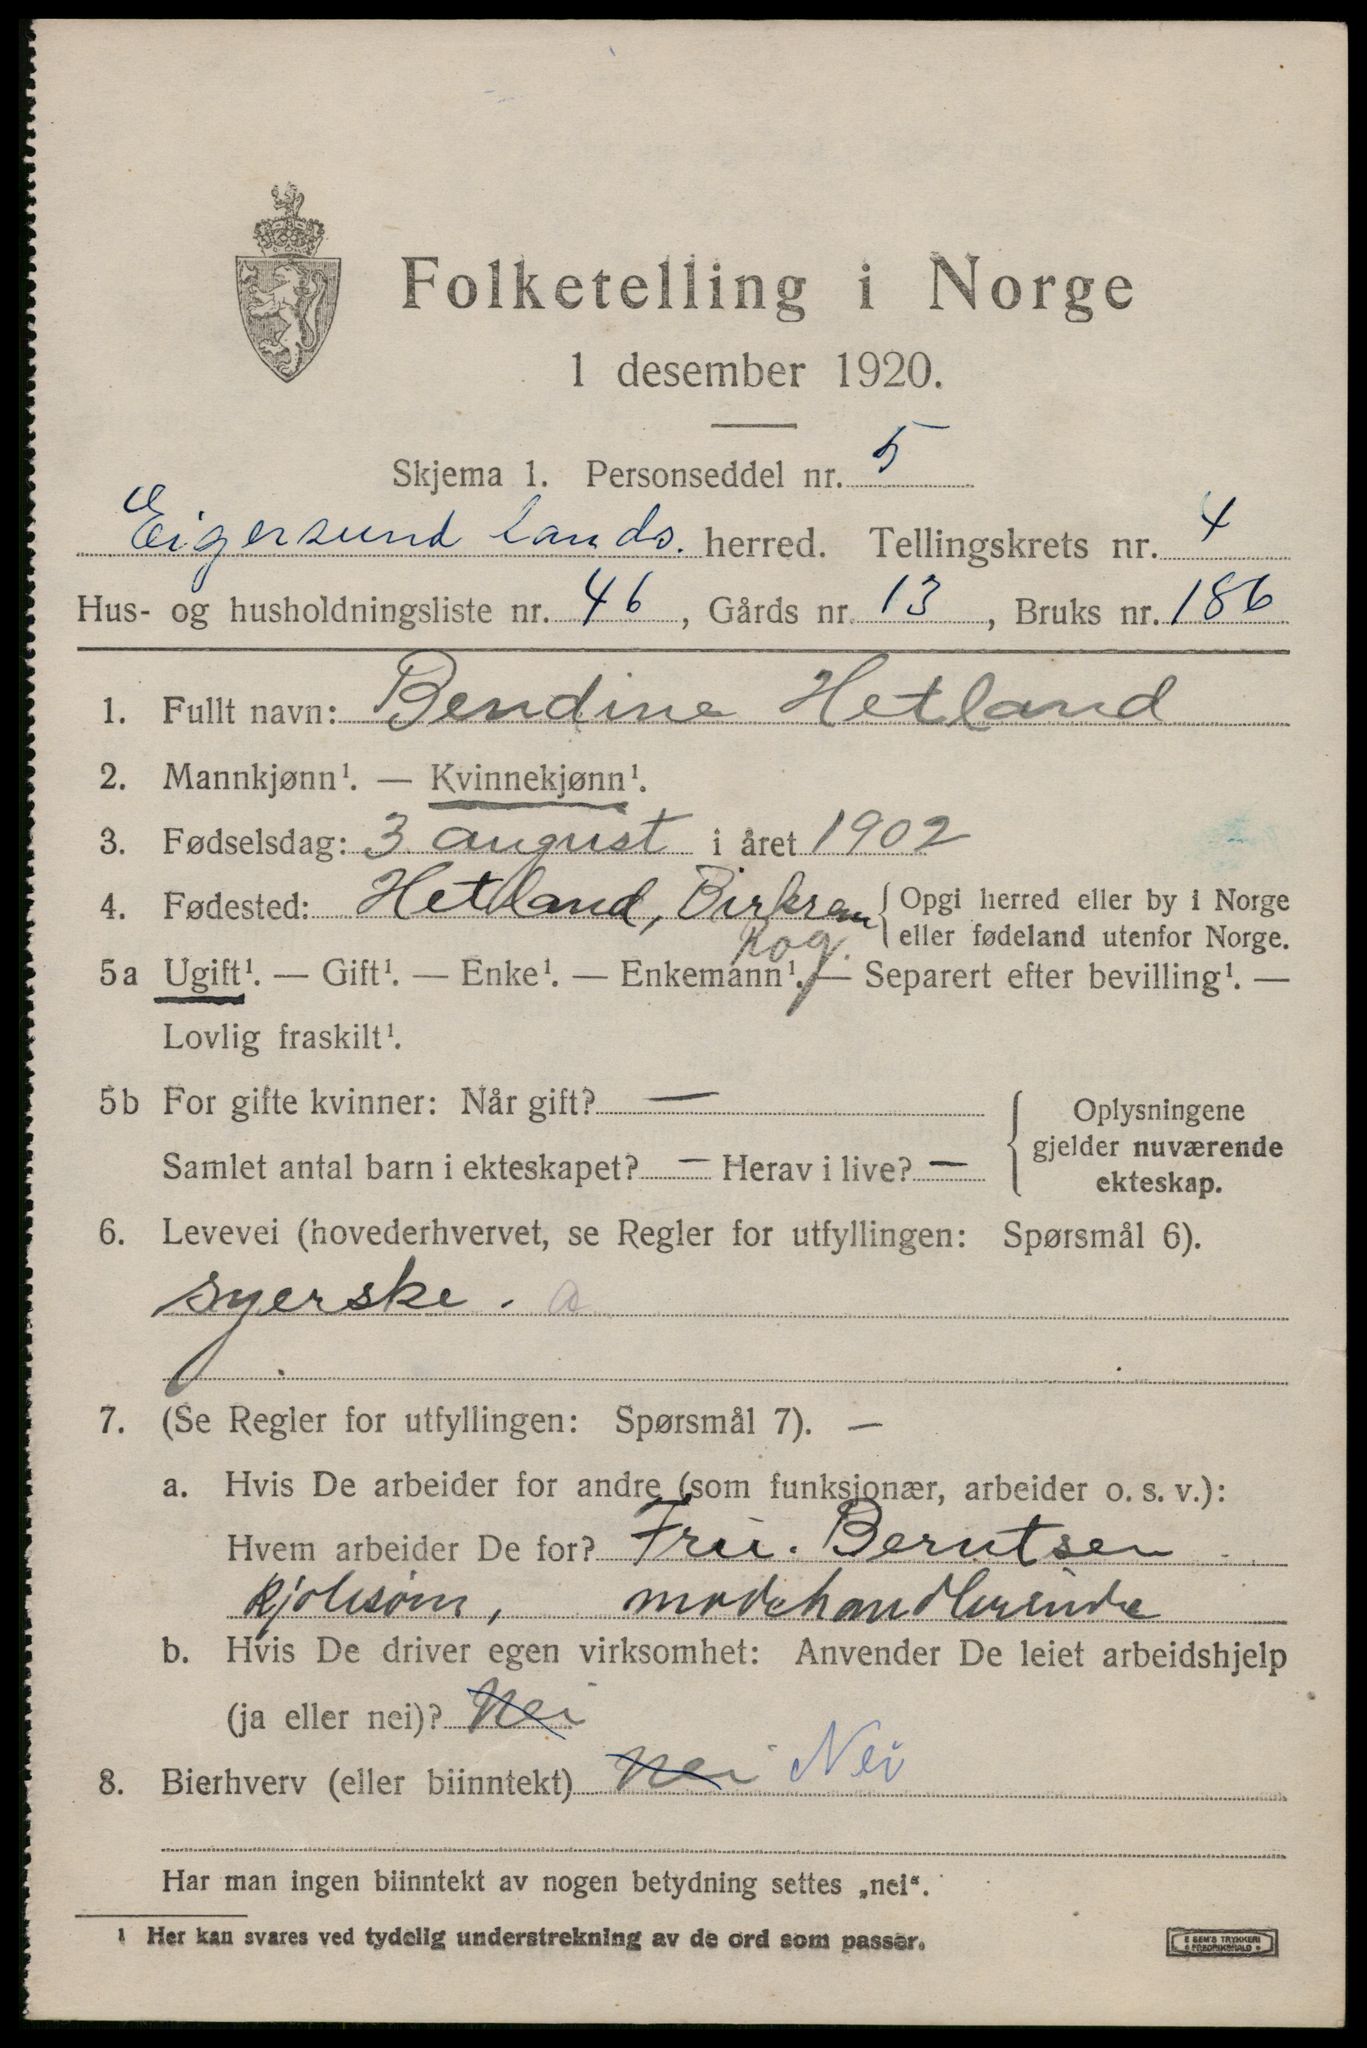 Folketelling i Norge
1 desember 1920.
Skjema 1. Personseddel nr. 5
Eigersund lands. herred. Tellingskrets nr. 4
Hus- og husholdningsliste nr. 46, Gårds nr. 13, Bruks nr. 186
1. Fullt navn: Bendine Hetland
2. Mannkjønn¹. — Kvinnekjønn¹.
3. Fødselsdag: 3 august i året 1902
4. Fødested: Hetland, Birkrem { Opgi herred eller by i Norge
Rog. eller fødeland utenfor Norge.
5a Ugift¹. — Gift¹. — Enke¹. — Enkemann¹. — Separert efter bevilling¹. —
Lovlig fraskilt¹.
5b For gifte kvinner: Når gift? —
Samlet antal barn i ekteskapet? — Herav i live? —
{ Oplysningene
gjelder nuværende
ekteskap.
6. Levevei (hovederhvervet, se Regler for utfyllingen: Spørsmål 6).
syerske. a
7. (Se Regler for utfyllingen: Spørsmål 7). —
a. Hvis De arbeider for andre (som funksjonær, arbeider o. s. v.):
Hvem arbeider De for? Fru. Berntsen
kjolesøm, modehandlerinde
b. Hvis De driver egen virksomhet: Anvender De leiet arbeidshjelp
(ja eller nei)? Nei
8. Bierhverv (eller biinntekt) Nei Nei
Har man ingen biinntekt av nogen betydning settes „nei“.
1 Her kan svares ved tydelig understrekning av de ord som passer.
E SEM'S TRYKKERI
FREDRIKSHALD